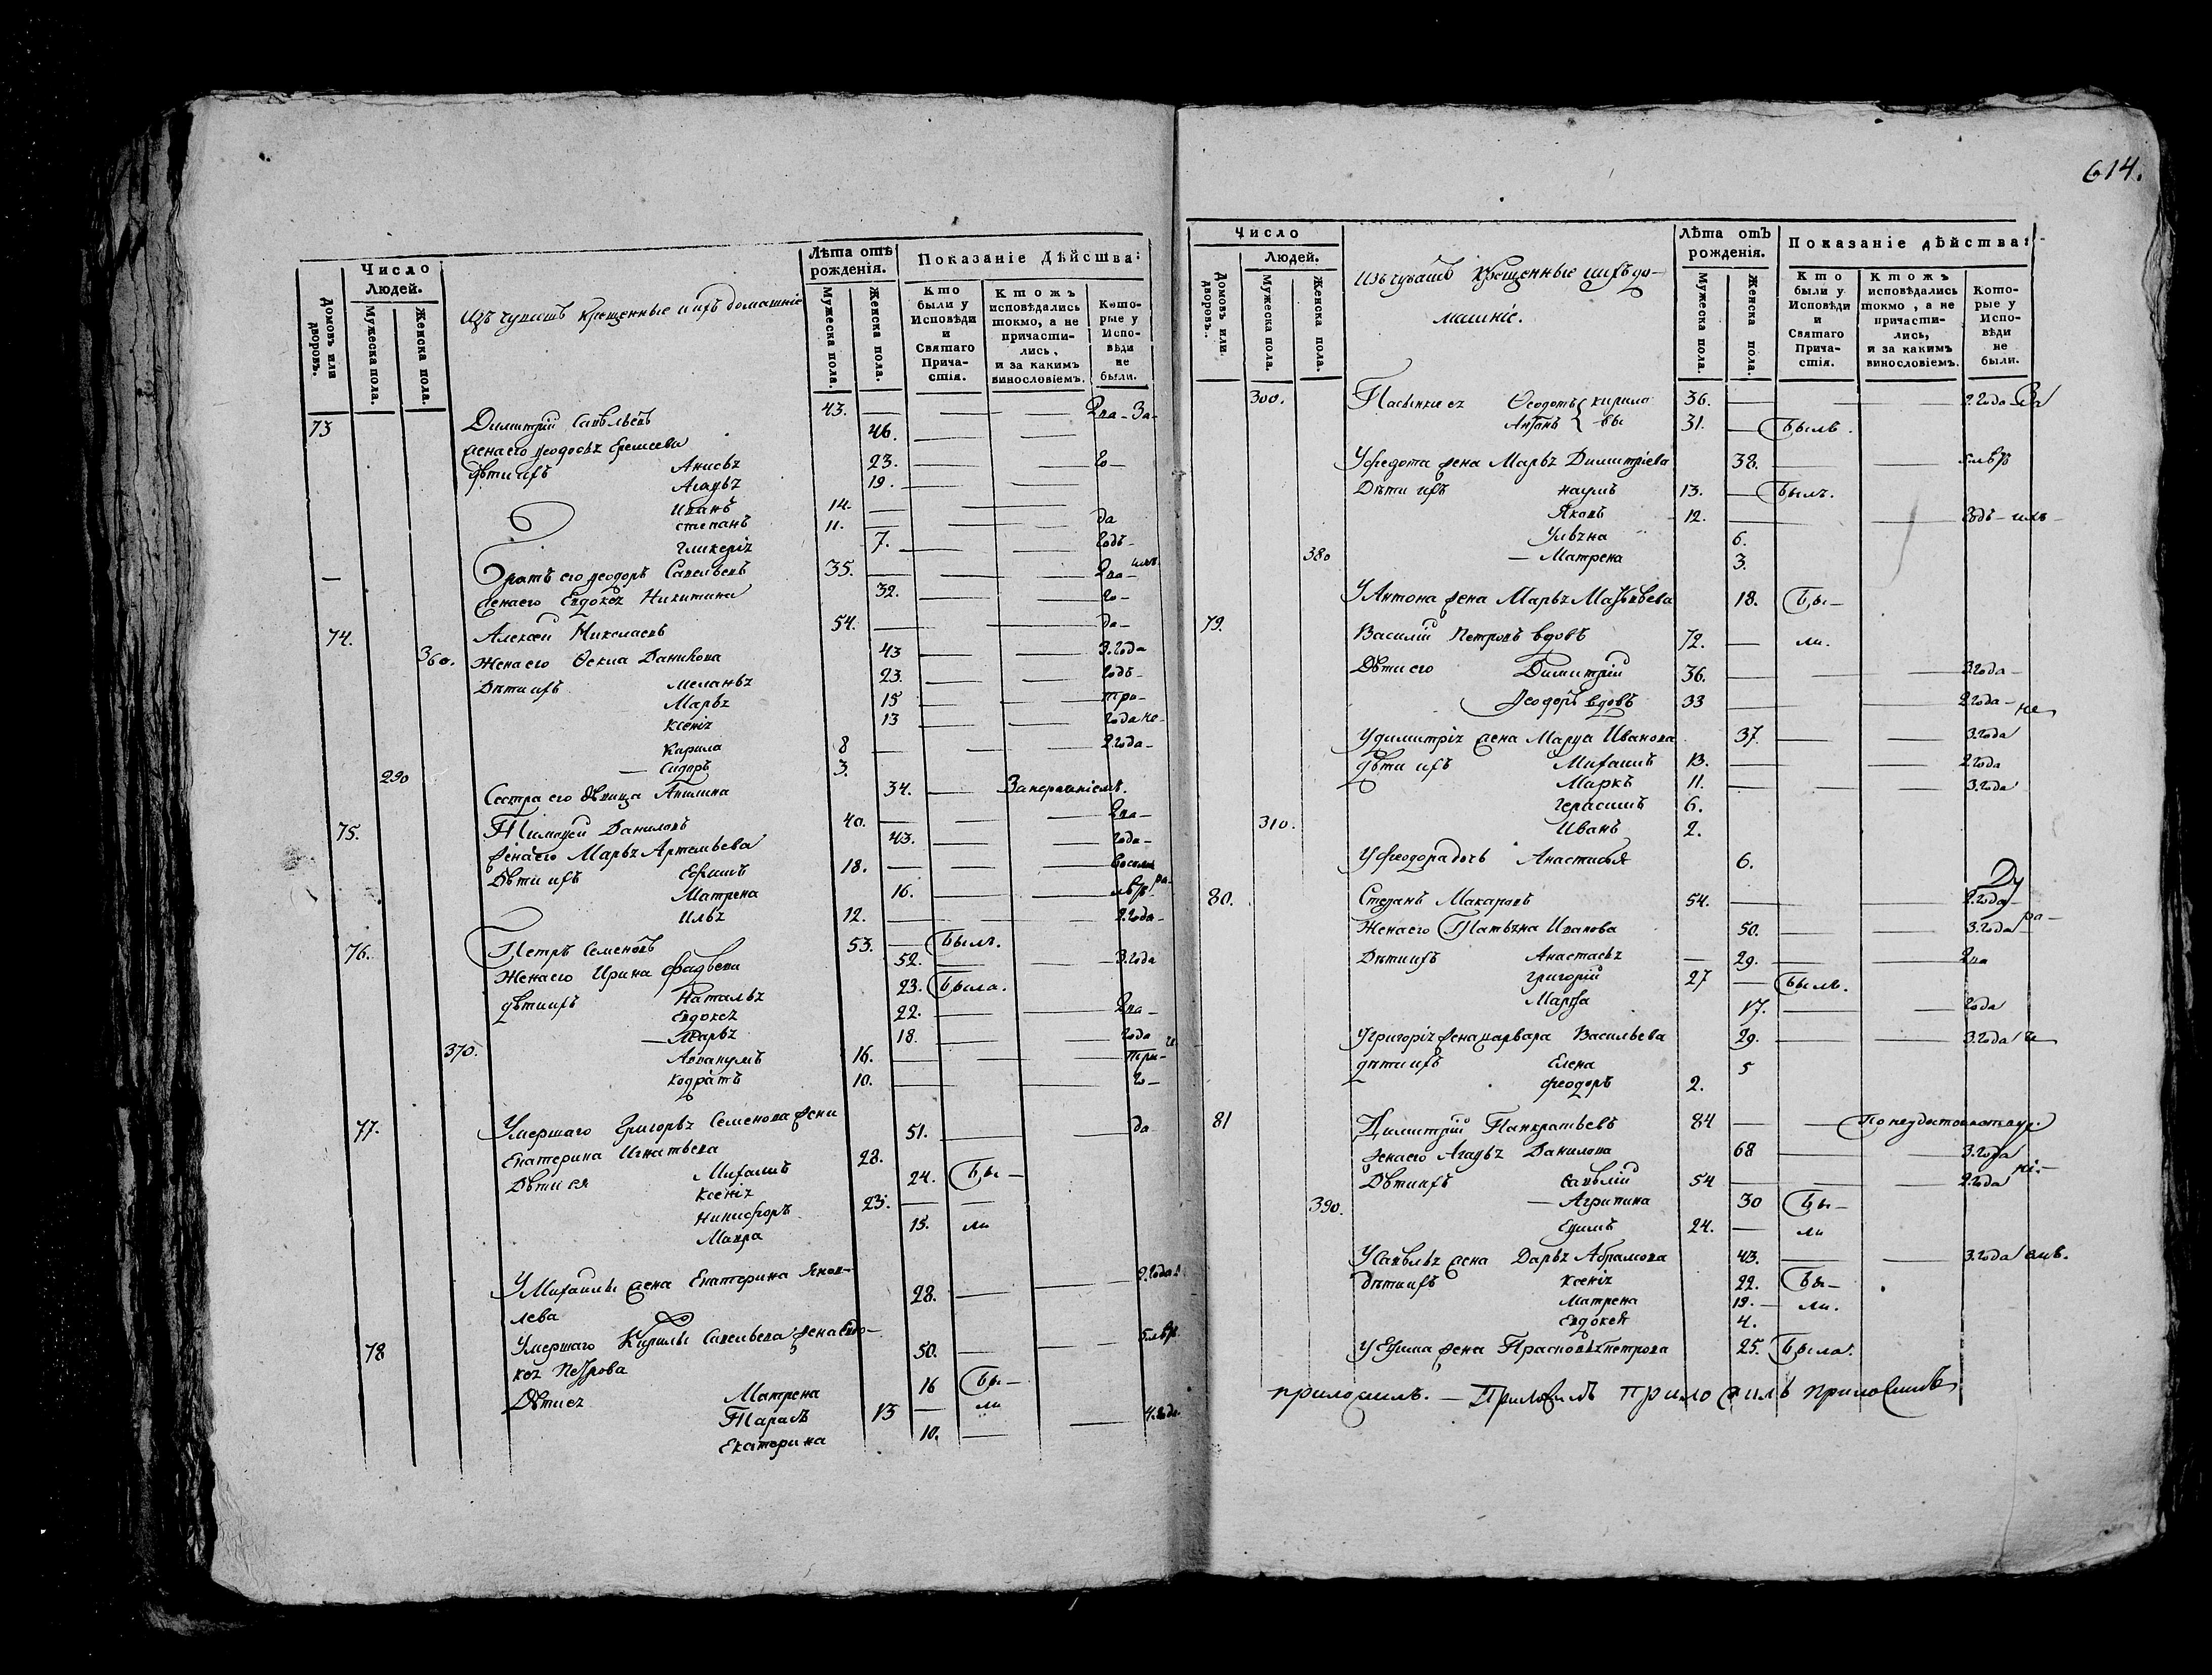 Число
Людей.
Домовъ или дворовъ.
Мужеска пола.
Женска пола.
Изъ чувашъ крещенные и ихъ домашніе
Лѣта отъ рожденія.
Мужеска пола.
Женска пола.
Показаніе дѣйства:
Кто были у Исповѣди и Святаго Причастія.
Ктожъ исповѣдались токмо, а не причастились, и за какимъ винословіемъ.
Которые у Исповѣди не были.
73 Димитрій Савельевъ 43.
жена его Ѳеодосья 46.
Дѣти ихъ Анисья 23.
Агафья 19.
Иванъ 14.
степанъ 11. да
Гликерія 7. годъ
Братъ его Ѳеодоръ Савельевъ 35.
жена его Евдокея Никитина 32.
74. Алексей Николаевъ 54. да
360. Жена его Ѳекла Данилова 43 3. года
Дѣти ихъ Меланья 23. годъ
Марья 15
Ксенія 13 года не
Кирила 8 2 года
290 Сидоръ 3.
Сестра его дѣвица Акилина 34.
75. Тимоѳей Даниловъ 40.
жена его Марья Артемьева 43. года
Дѣти ихъ Ефимъ 18.
Матрена 16.
Илья 12. 2. года
76. Петръ Семеновъ 53. Былъ.
Жена его Ирина Фадѣева 52. 3. года
дѣти ихъ Наталья 23. Была.
Евдокея 22.
Дарья 18. года
370. Аввакумъ 16.
кодратъ 10.
77. Умершаго Григорья Семенова жена 51. да
Екатерина Игнатьева
Дѣти ея Михаилъ 28.
Ксенія 24. Бы
Никифоръ 23.
Мавра 15. ли
У Михаилы жена Екатерина Яков-
лева 28. 2. года
78 Умершаго Кирилы Савельева жена Евдо-
кея Петрова 50.
Дѣти ея Матрена 16 Бы
Тарасъ 13 ли
Екатерина 10. 4. года
614.
Число
Людей.
Домовъ или дворовъ.
Мужеска пола.
Женска пола.
Изъ чувашъ крещенные и ихъ до-
машніе.
Лѣта отъ рожденія.
Мужеска пола.
Женска пола.
Показаніе дѣйства:
Кто были у Исповѣди и Святаго Причастія.
Ктожъ исповѣдались токмо, а не причастились, и за какимъ винословіемъ.
Которые у Исповѣди не были.
300. Пасынки ея Ѳедотъ кирило 36. 2. года
Антонъ вы 31. Былъ.
У Федота жена Марья Димитріева 38.
Дѣти ихъ наумъ 13. Былъ.
Яковъ 12.
Ульяна 6.
380 Матрена 3.
У Антона жена Марья Матвѣева 18. Бы
79. Василій Петровъ вдовъ 72. ли.
Дѣти его Димитрій 36. 3 года
Ѳеодоръ вдовъ 33 2 года не
У димитрія жена Марфа Иванова 37. 3. года
дѣти ихъ Михаилъ 13. 2 года
Маркъ 11. 3. года
Герасимъ 6.
310. Иванъ 2.
У Феодора дочь Анастасья 6.
80. Степанъ Макаровъ 54. 2. года
Жена его Татьяна Иванова 50. 3. года
Дѣти ихъ Анастасья 29.
Григорій 27 Былъ.
Марфа 17. года
У григорія жена варвара Васильева 29. 3. года
дѣти ихъ Елена 5
Феодоръ 2.
81 Димитрій Панкратьевъ 84
жена его Агафья Данилова 68 3. года
Дѣти ихъ Савелій 54 2. года
390. Агрипина 30 Бы
Ефимъ 24. ли
У Савелья жена Дарья Абрамова 43. 3. года
дѣти ихъ ксенія 22. Бы
Матрена 19. ли.
Евдокея 4.
У Ефима жена Прасковья петрова 25. Была.
приложилъ. — Приложилъ приложилъ приложилъ